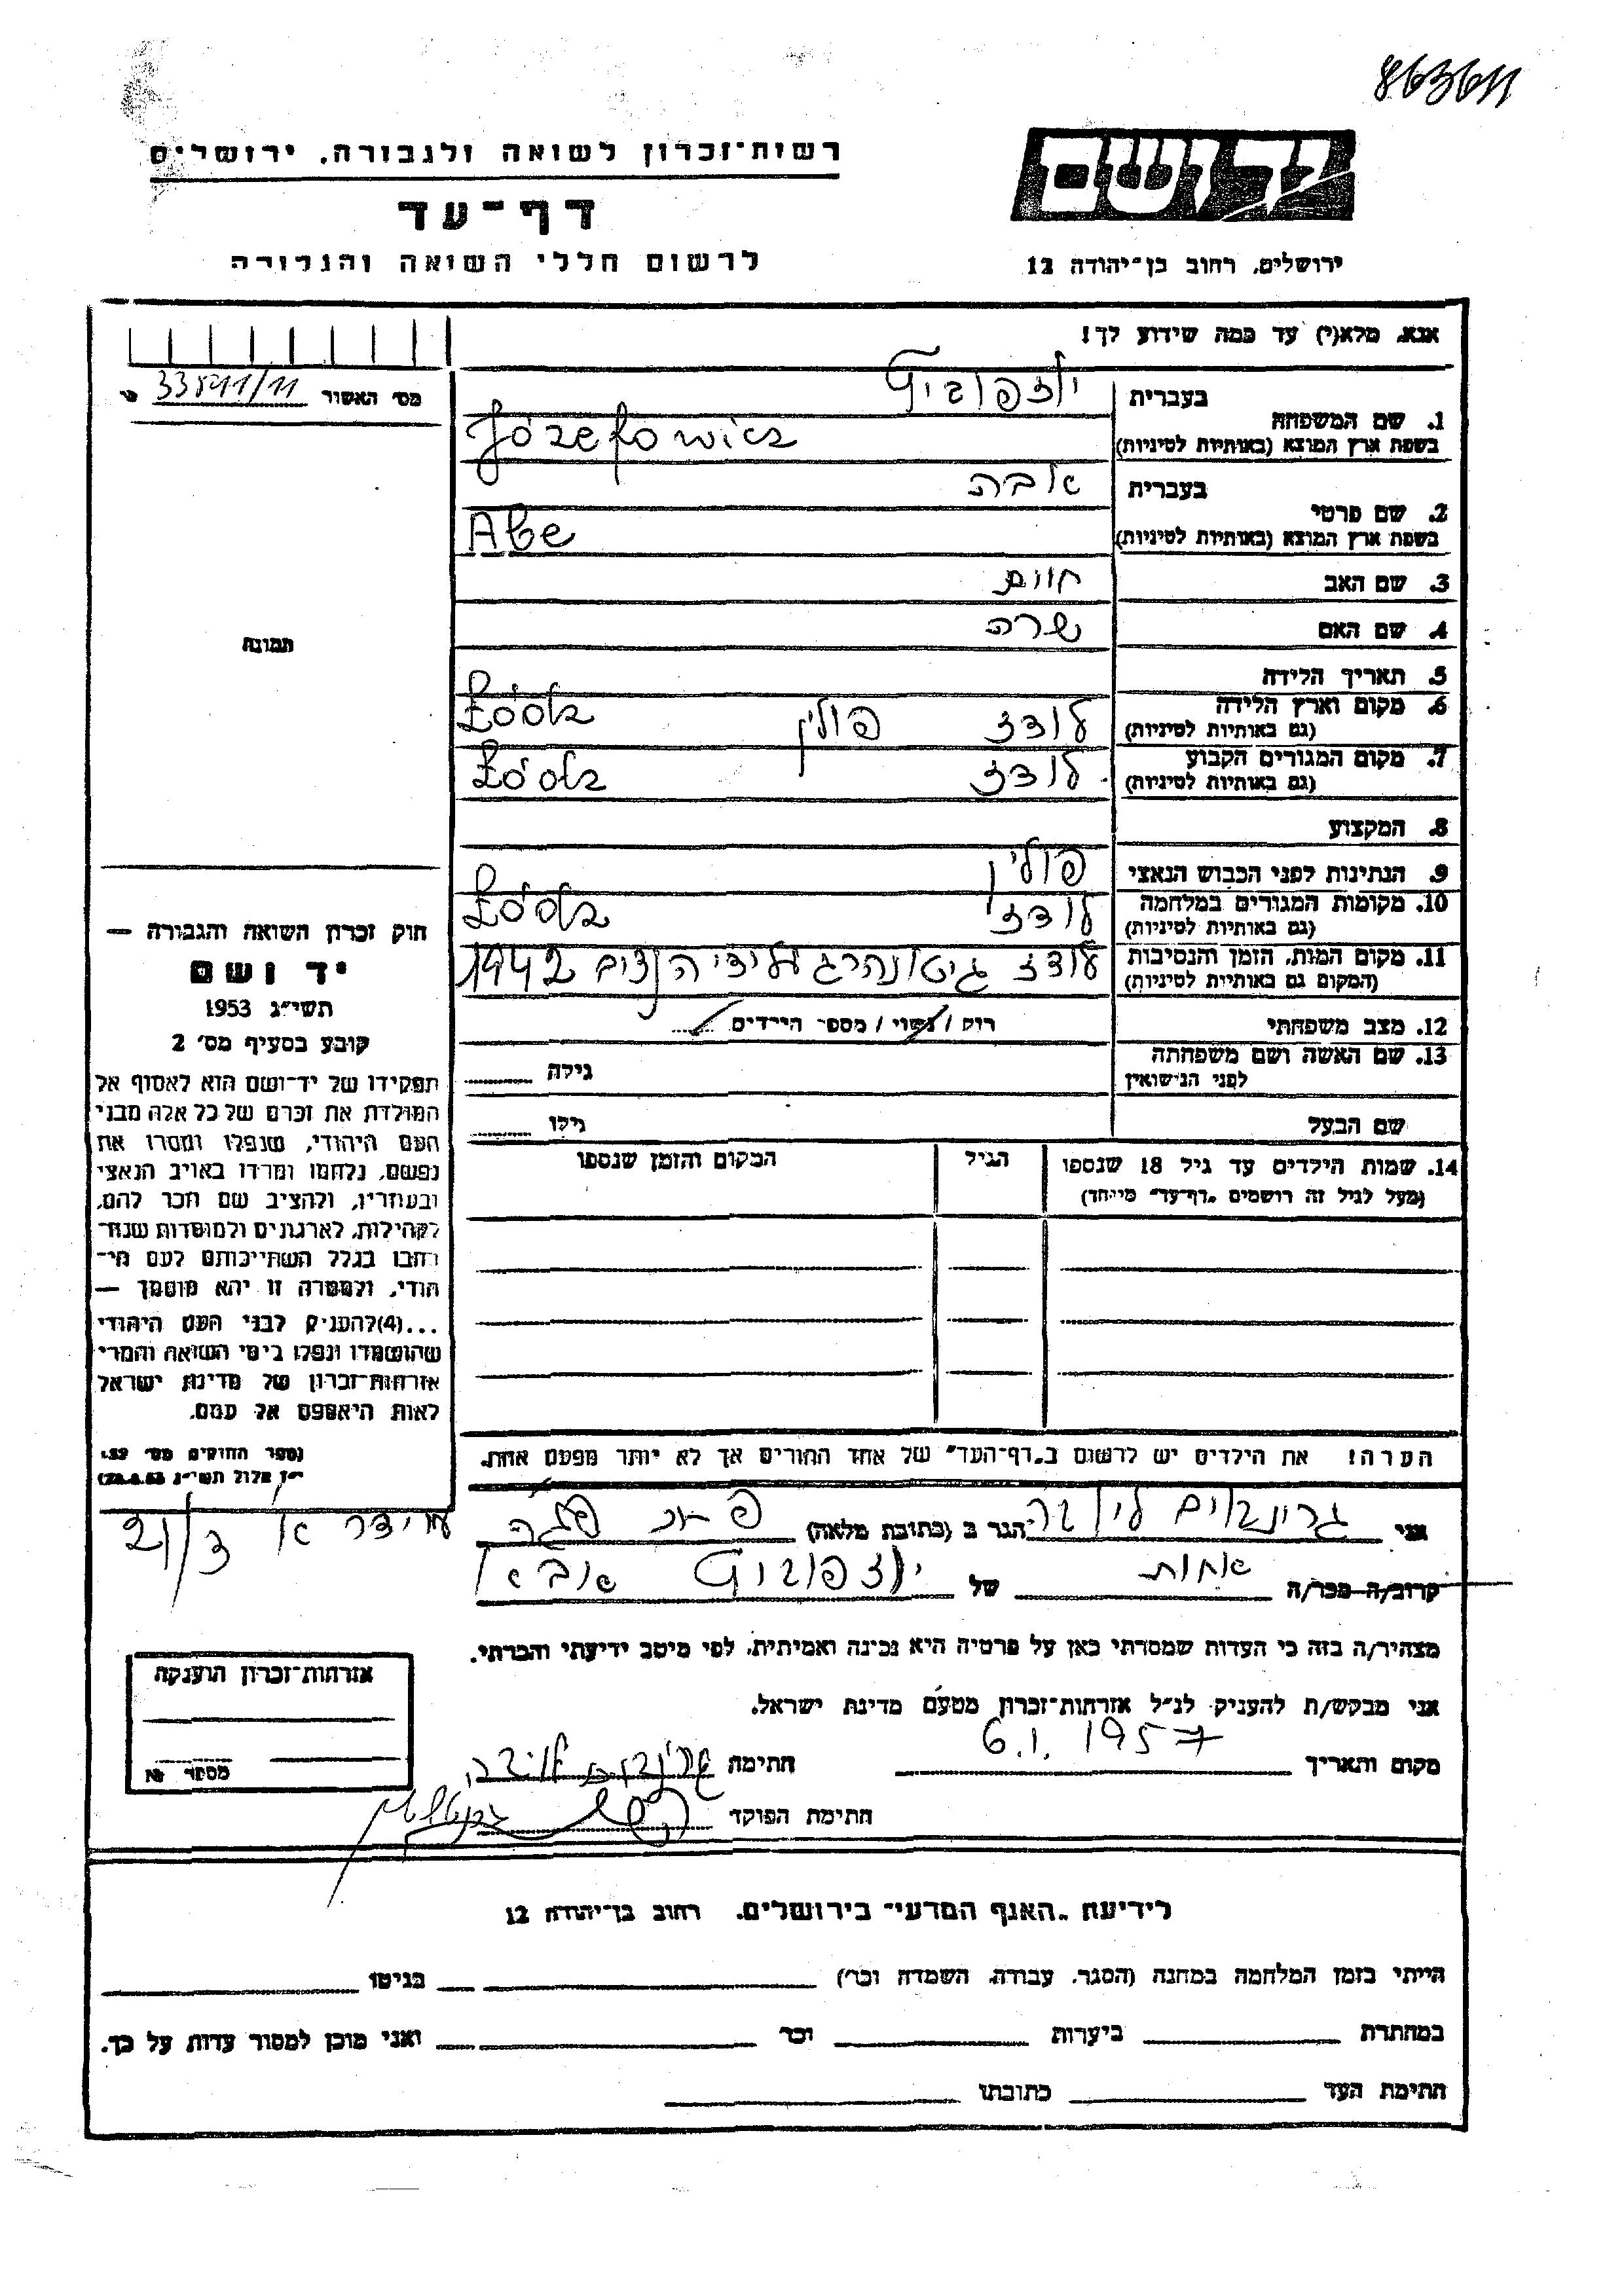 863611
יד ושם
ירושלים, רחוב בן־יהודה 12
רשות־זכרון לשואה ולגבורה, ירושלים
דף־עד
לרשום חללי השואה והגבורה
אנא, מלא(י) עד כמה שידוע לך!
מס' האשור
1. שם המשפחה
בעברית
בשפת ארץ המוצא (באותיות לטיניות)
Józefowicz
2. שם פרטי
בעברית
בשפת ארץ המוצא (באותיות לטיניות)
Abe
3. שם האב
חיים
4. שם האם
שרה
תמונה
5. תאריך הלידה
6. מקום וארץ הלידה
(גם באותיות לטיניות)
לודז פולין Łódź
7. מקום המגורים הקבוע
(גם באותיות לטיניות)
לודז Łódź
8. המקצוע
9. הנתינות לפני הכבוש הנאצי
פולין
10. מקומות המגורים במלחמה
(גם באותיות לטיניות)
לודז Łódź
11. מקום המות, הזמן והנסיבות
(המקום גם באותיות לטיניות)
לודז גיטו נהרג על ידי הנצים 1942
12. מצב משפחתי
רוק / נשוי / מספר הילדים
13. שם האשה ושם משפחתה
לפני הנישואין
גילה
שם הבעל
גילו
14. שמות הילדים עד גיל 18 שנספו
(מעל לגיל זה רושמים "דף־עד" מייחד)
הגיל
המקום והזמן שנספו
חוק זכרון השואה והגבורה —
יד ושם
תשי"ג 1953
קובע בסעיף מס' 2
תפקידו של יד־ושם הוא לאסוף אל
המולדת את זכרם של כל אלה מבני
העם היהודי, שנפלו ומסרו את
נפשם, נלחמו ומרדו באויב הנאצי
ובעוזריו, ולהציב שם וזכר להם,
לקהילות, לארגונים ולמוסדות שנח־
רבו בגלל השתייכותם לעם הי־
הודי, ולמטרה זו יהא מוסמך —
...(4) להעניק לבני העם היהודי
שהושמדו ונפלו בימי השואה והמרי
אזרחות־זכרון של מדינת ישראל
לאות היאספם אל עמם.
(ספר החוקים מס' 132,
י"ז אלול תשי"ג 28.8.53)
הערה! את הילדים יש לרשום ב"דף־העד" של אחד ההורים אך לא יותר מפעם אחת.
אני
הגר ב (כתובת מלאה)
קרוב/ה מכר/ה אחות של
מצהיר/ה בזה כי העדות שמסרתי כאן על פרטיה היא נכונה ואמיתית, לפי מיטב ידיעתי והכרתי.
אני מבקש/ת להעניק לנ"ל אזרחות־זכרון מטעם מדינת ישראל.
מקום ותאריך 6.1.1957 חתימה
חתימת הפוקד
אזרחות־זכרון הוענקה
מספר №
לידיעת "האגף המדעי" בירושלים, רחוב בן־יהודה 12
הייתי בזמן המלחמה במחנה (הסגר, עבודה, השמדה וכו') בגיטו
במחתרת ביערות וכו' ואני מוכן למסור עדות על כך.
חתימת העד כתובתו